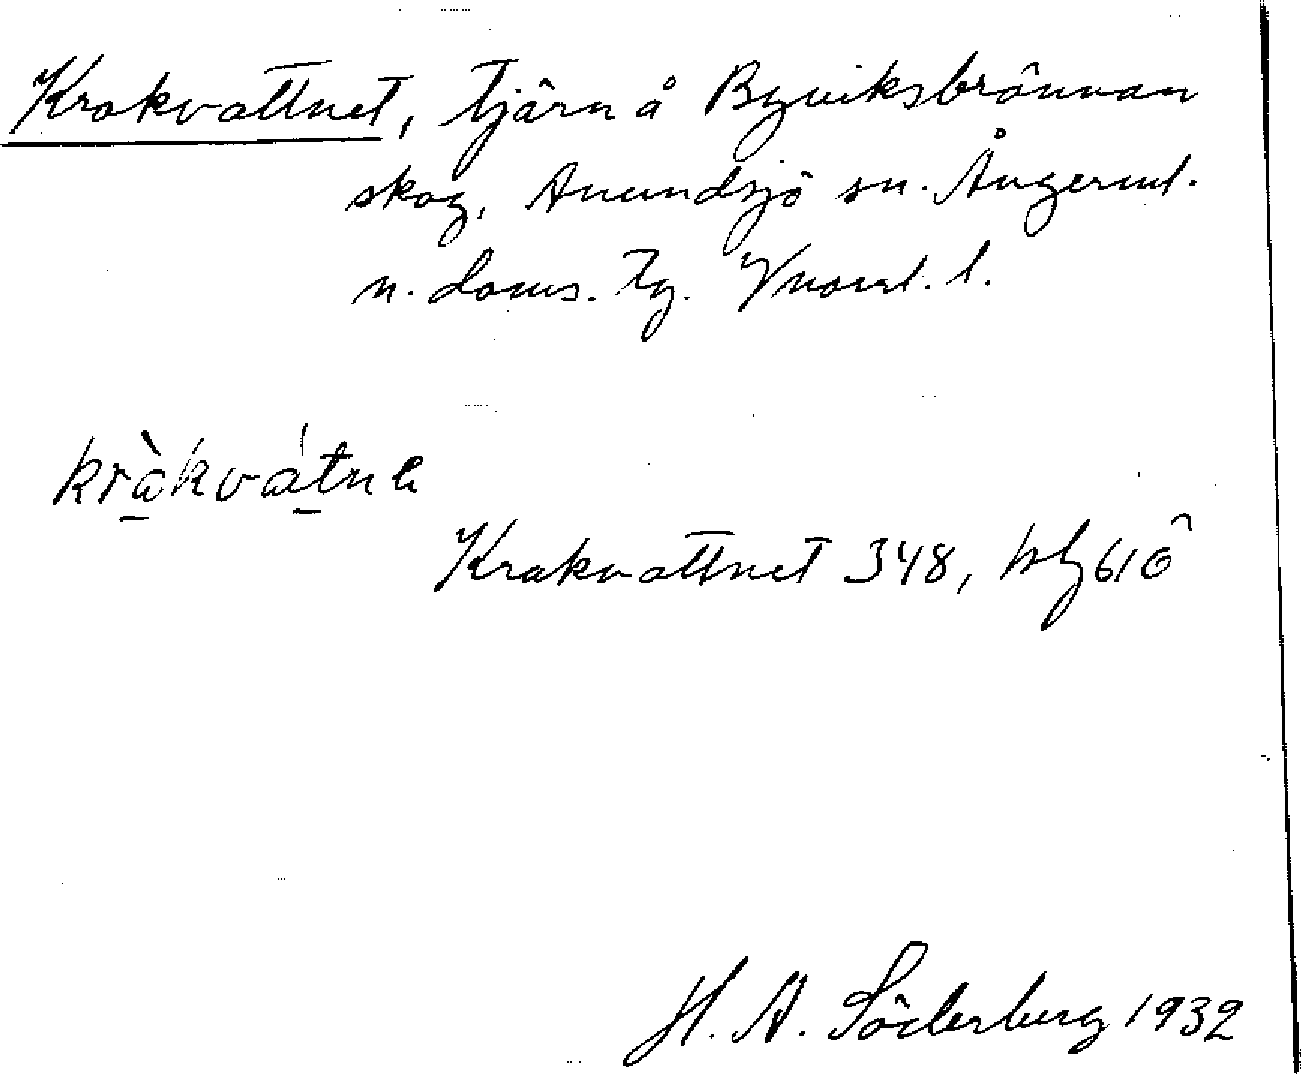 Krakvattnet, tjärn å Byviksbrännan
skog, Anundsjö sn. Ångerml.
n. doms. tg. Vnorrl. l.
kràkvátnɐ
Krakvattnet 348, blg 61ö
H. A. Söderberg 1932